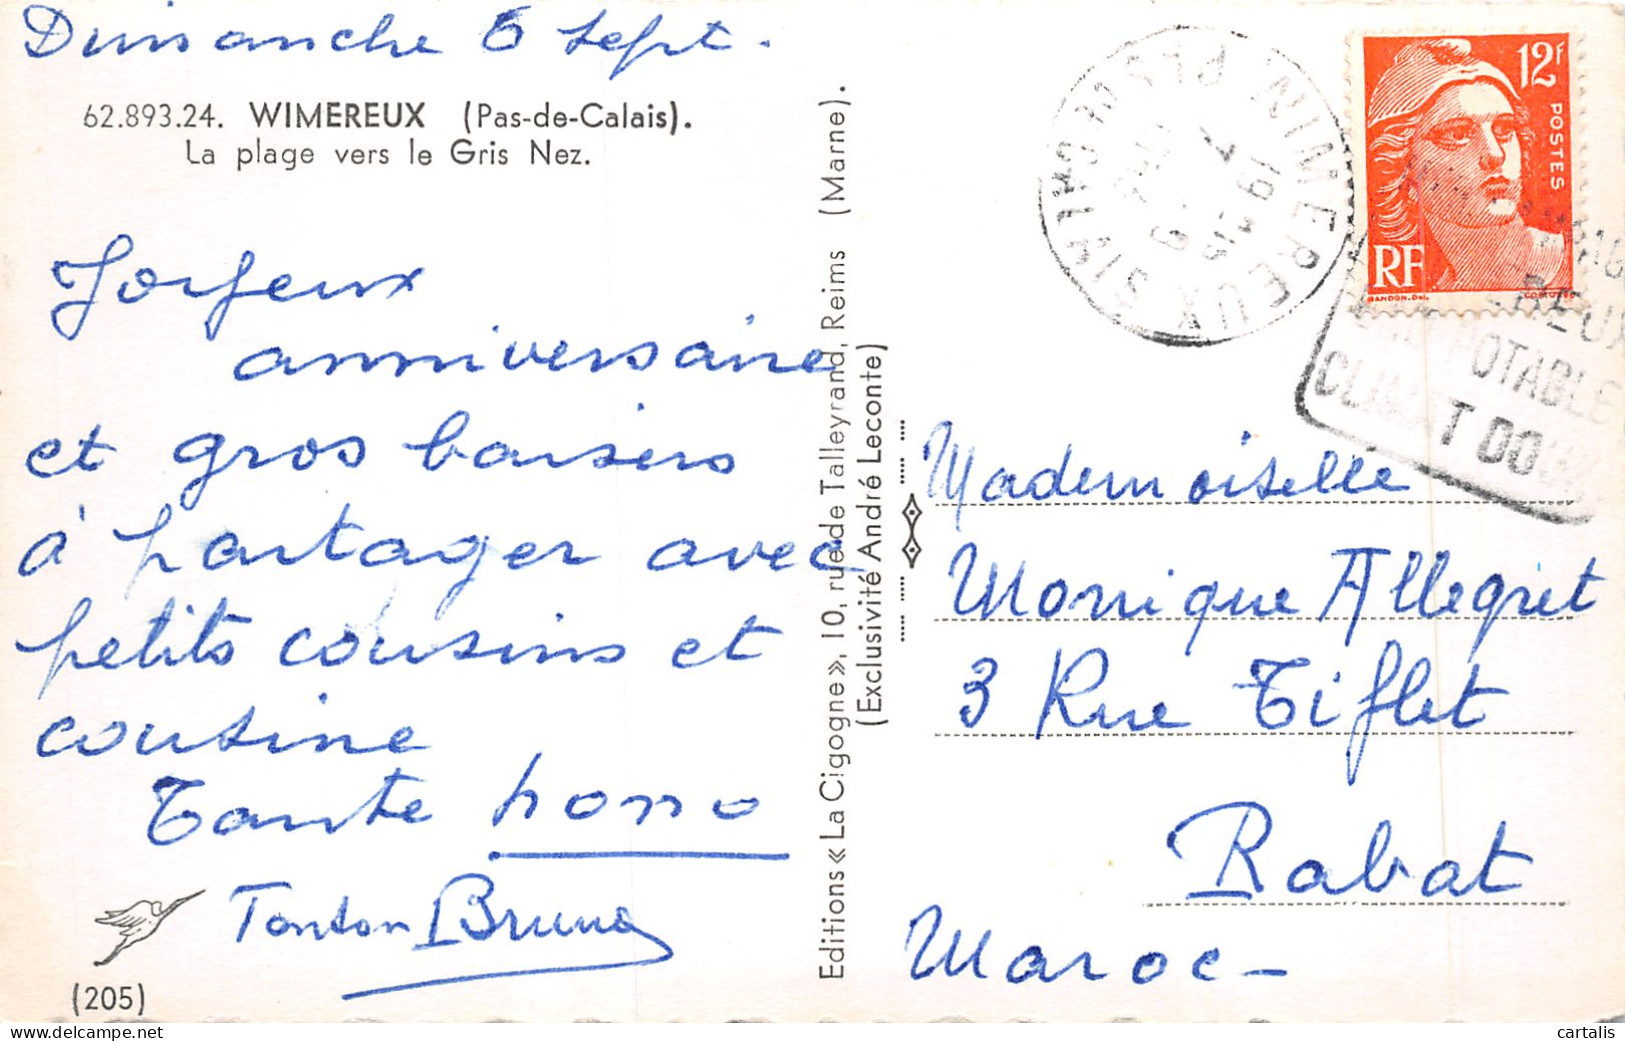 Dimanche 6 Sept.
62.893.24. WIMEREUX (Pas-de-Calais).
La plage vers le Gris Nez.
Joyeux
anniversaire
et gros baisers
à partager avec
petits cousins et
cousine
Tante nono
Tonton Bruno
(205)
Editions « La Cigogne », 10, rue de Talleyrand, Reims (Marne).
(Exclusivité André Leconte)
WIMEREUX PAS DE CALAIS
12F
POSTES
RF
GANDON. Del.
REUX
POTABLE
CLIMAT DOUX
Mademoiselle
Monique Allegret
3 Rue Tiflet
Rabat
Maroc -
cartalis